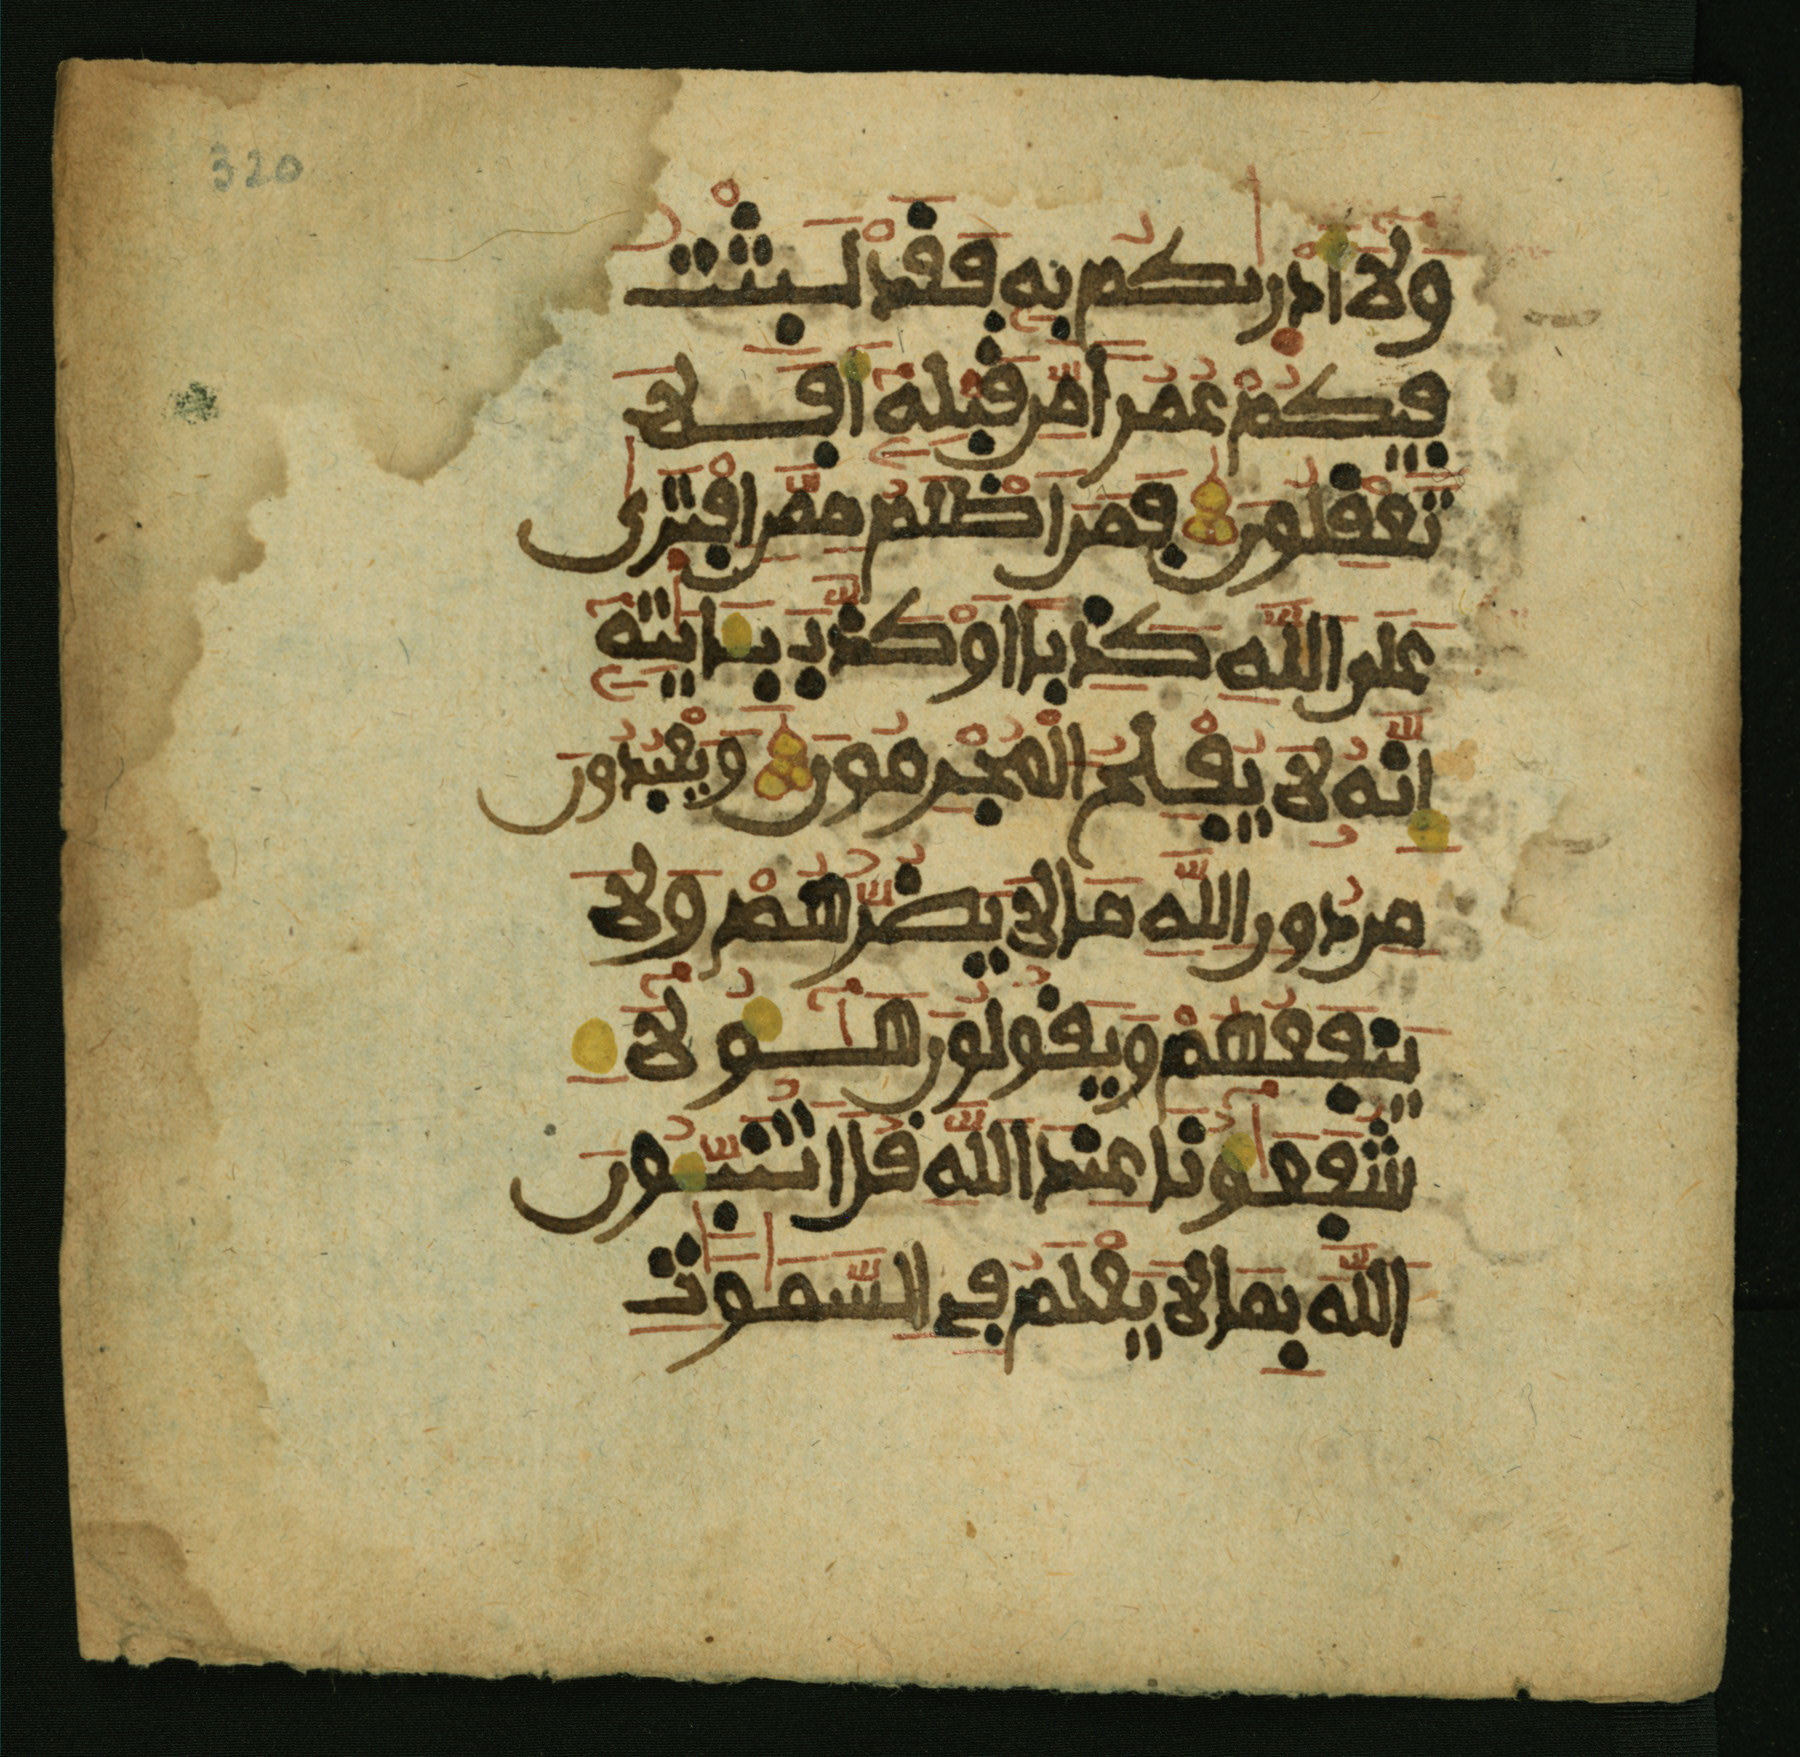 320
وَلَا أَدْرَىٰكُم بِهِ فَقَدْ لَبِثْتُ
فِيكُمْ عُمُرًا مِّن قَبْلِهِ أَفَلَا
تَعْقِلُونَ فَمَنْ أَظْلَمُ مِمَّنِ افْتَرَىٰ
عَلَى اللَّهِ كَذِبًا أَوْ كَذَّبَ بِـَٔايَٰتِهِ
إِنَّهُ لَا يُفْلِحُ الْمُجْرِمُونَ وَيَعْبُدُونَ
مِن دُونِ اللَّهِ مَا لَا يَضُرُّهُمْ وَلَا
يَنفَعُهُمْ وَيَقُولُونَ هَٰٓؤُلَآءِ
شُفَعَٰٓؤُنَا عِندَ اللَّهِ قُلْ أَتُنَبِّـُٔونَ
اللَّهَ بِمَا لَا يَعْلَمُ فِي السَّمَٰوَٰتِ